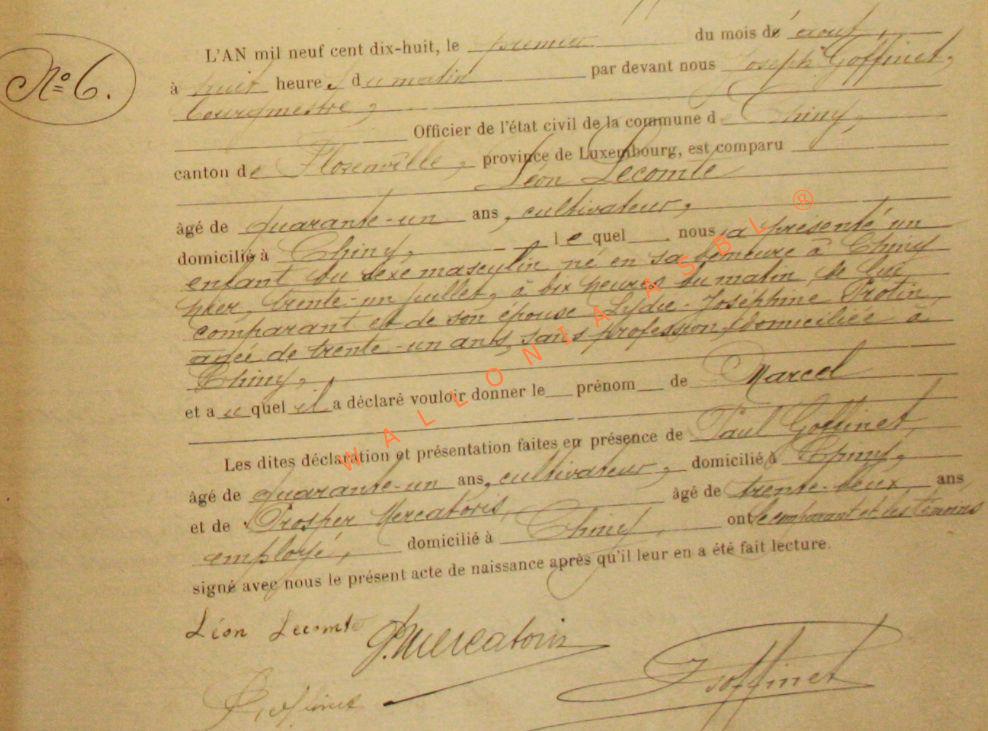 N° 6.
L'AN mil neuf cent dix-huit, le premier du mois de août,
à huit heures du matin par devant nous Joseph Goffinet,
bourgmestre,
Officier de l'état civil de la commune de Chiny,
canton de Florenville, province de Luxembourg, est comparu
Léon Lecomte
âgé de quarante-un ans, cultivateur,
domicilié à Chiny, lequel nous a présenté un
enfant du sexe masculin né en sa demeure à Chiny
hier, trente-un juillet, à dix heures du matin, de lui
comparant et de son épouse Lydie-Joséphine Protin,
âgée de trente-un ans, sans profession, domiciliée à
Chiny,
et auquel il a déclaré vouloir donner le prénom de Marcel
Les dites déclaration et présentation faites en présence de Paul Goffinet,
âgé de quarante-un ans, cultivateur, domicilié à Chiny,
et de Prosper Mercatoris, âgé de trente-deux ans
employé, domicilié à Chiny, ont le comparant et les témoins
signé avec nous le présent acte de naissance après qu'il leur en a été fait lecture.
Léon Lecomte P. Mercatoris
P. Goffinet J Goffinet
WALLONIA ASBL ®